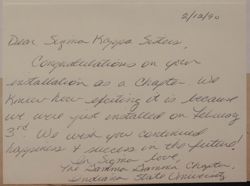 2/12/90
Dear Sigma Kappa Sisters,
Congratulations on your
installation as a chapter. We
know how exciting it is because
we were just installed on February
3rd. We wish you continued
happiness & success in the future!
In Sigma love,
The Gamma Gamma Chapter,
Indiana State University